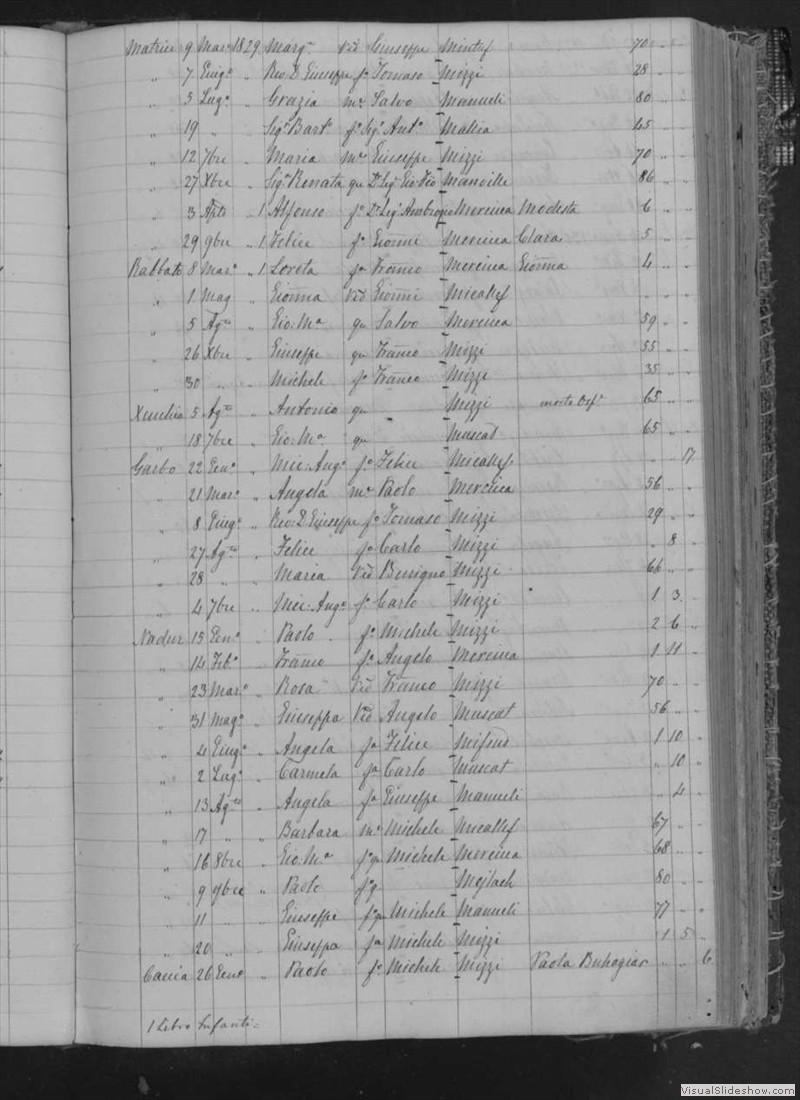 Matrice 9 Mar° 1829 Marg.ª Vid Giuseppe Mintuf 70 " "
" 7 Giug° " Rev. D. Giuseppe f° Tomaso Mizzi 28 " "
" 5 Lug° " Grazia m.ª Salvo Manueli 80 " "
" 19 " " Sig.ª Bart.ª f° Sig. Ant° Mallia 45 " "
" 12 7bre " Maria m.ª Giuseppe Mizzi 70 " "
" 27 Xbre " Sig.ª Renata qu D. Manville 86 " "
" 3 Aple 1 Alfonso f° D. Sig. Ambrogio Mercieca Modesta 6 " "
" 29 9bre 1 Felice f° Giōnni Mercieca Clara 5 " "
Rabbato 8 Mar° 1 Loreta fª Franco Mercieca Giōnna 4 " "
" 1 Mag " Giōnna Vid Giōnni Micallef " " "
" 5 Agto " Gio. Mª qu Salvo Mercieca 59 " "
" 26 Xbre " Giuseppe qu Franco Mizzi 55 " "
" 30 " " Michele f° Franco Mizzi 35 " "
Xeuchia 5 Agto " Antonio qu - Mizzi morto Osp.e 65 " "
" 18 7bre " Gio. Mª qu Muscat 65 " "
Garbo 22 Gen° " Mic: Ang° f° Felice Micallef " " 17
" 21 Mar° " Angela m.ª Paolo Mercieca 56 " "
" 8 Giug° " Rev. D. Giuseppe f° Tomaso Mizzi 29 " "
" 27 Agto " Felice f° Carlo Mizzi " 8 "
" 28 " " Maria Vid Benigno Mizzi 66 " "
" 4 7bre " Mic: Ang° f° Carlo Mizzi 1 3 "
Nadur 15 Gen° " Paolo f° Michele Mizzi 2 6 "
" 14 Feb° " Franco f° Angelo Mercieca 1 11 "
" 23 Mar° " Rosa Vid Franco Mizzi 70 " "
" 31 Mag° " Giuseppa Vid Angelo Muscat 56 " "
" 4 Giug° " Angela fª Felice Mifsud 1 10 "
" 2 Lug° " Carmela fª Carlo Muscat " 10 "
" 13 Agto " Angela fª Giuseppe Manueli " 4 "
" 17 " " Barbara m.ª Michele Micallef 67 " "
" 16 8bre " Gio. Mª f° qu Michele Mercieca 68 " "
" 9 9bre " Paolo f° q Mejlach 80 " "
" 11 " " Giuseppe f° qu Michele Manueli 77 " "
" 20 " " Giuseppa fª Michele Mizzi 1 5 "
Caccia 26 Gen° " Paolo f° Michele Mizzi Paola Buhagiar " " 6
1 Libro Infanti =
VisualSlideshow.com